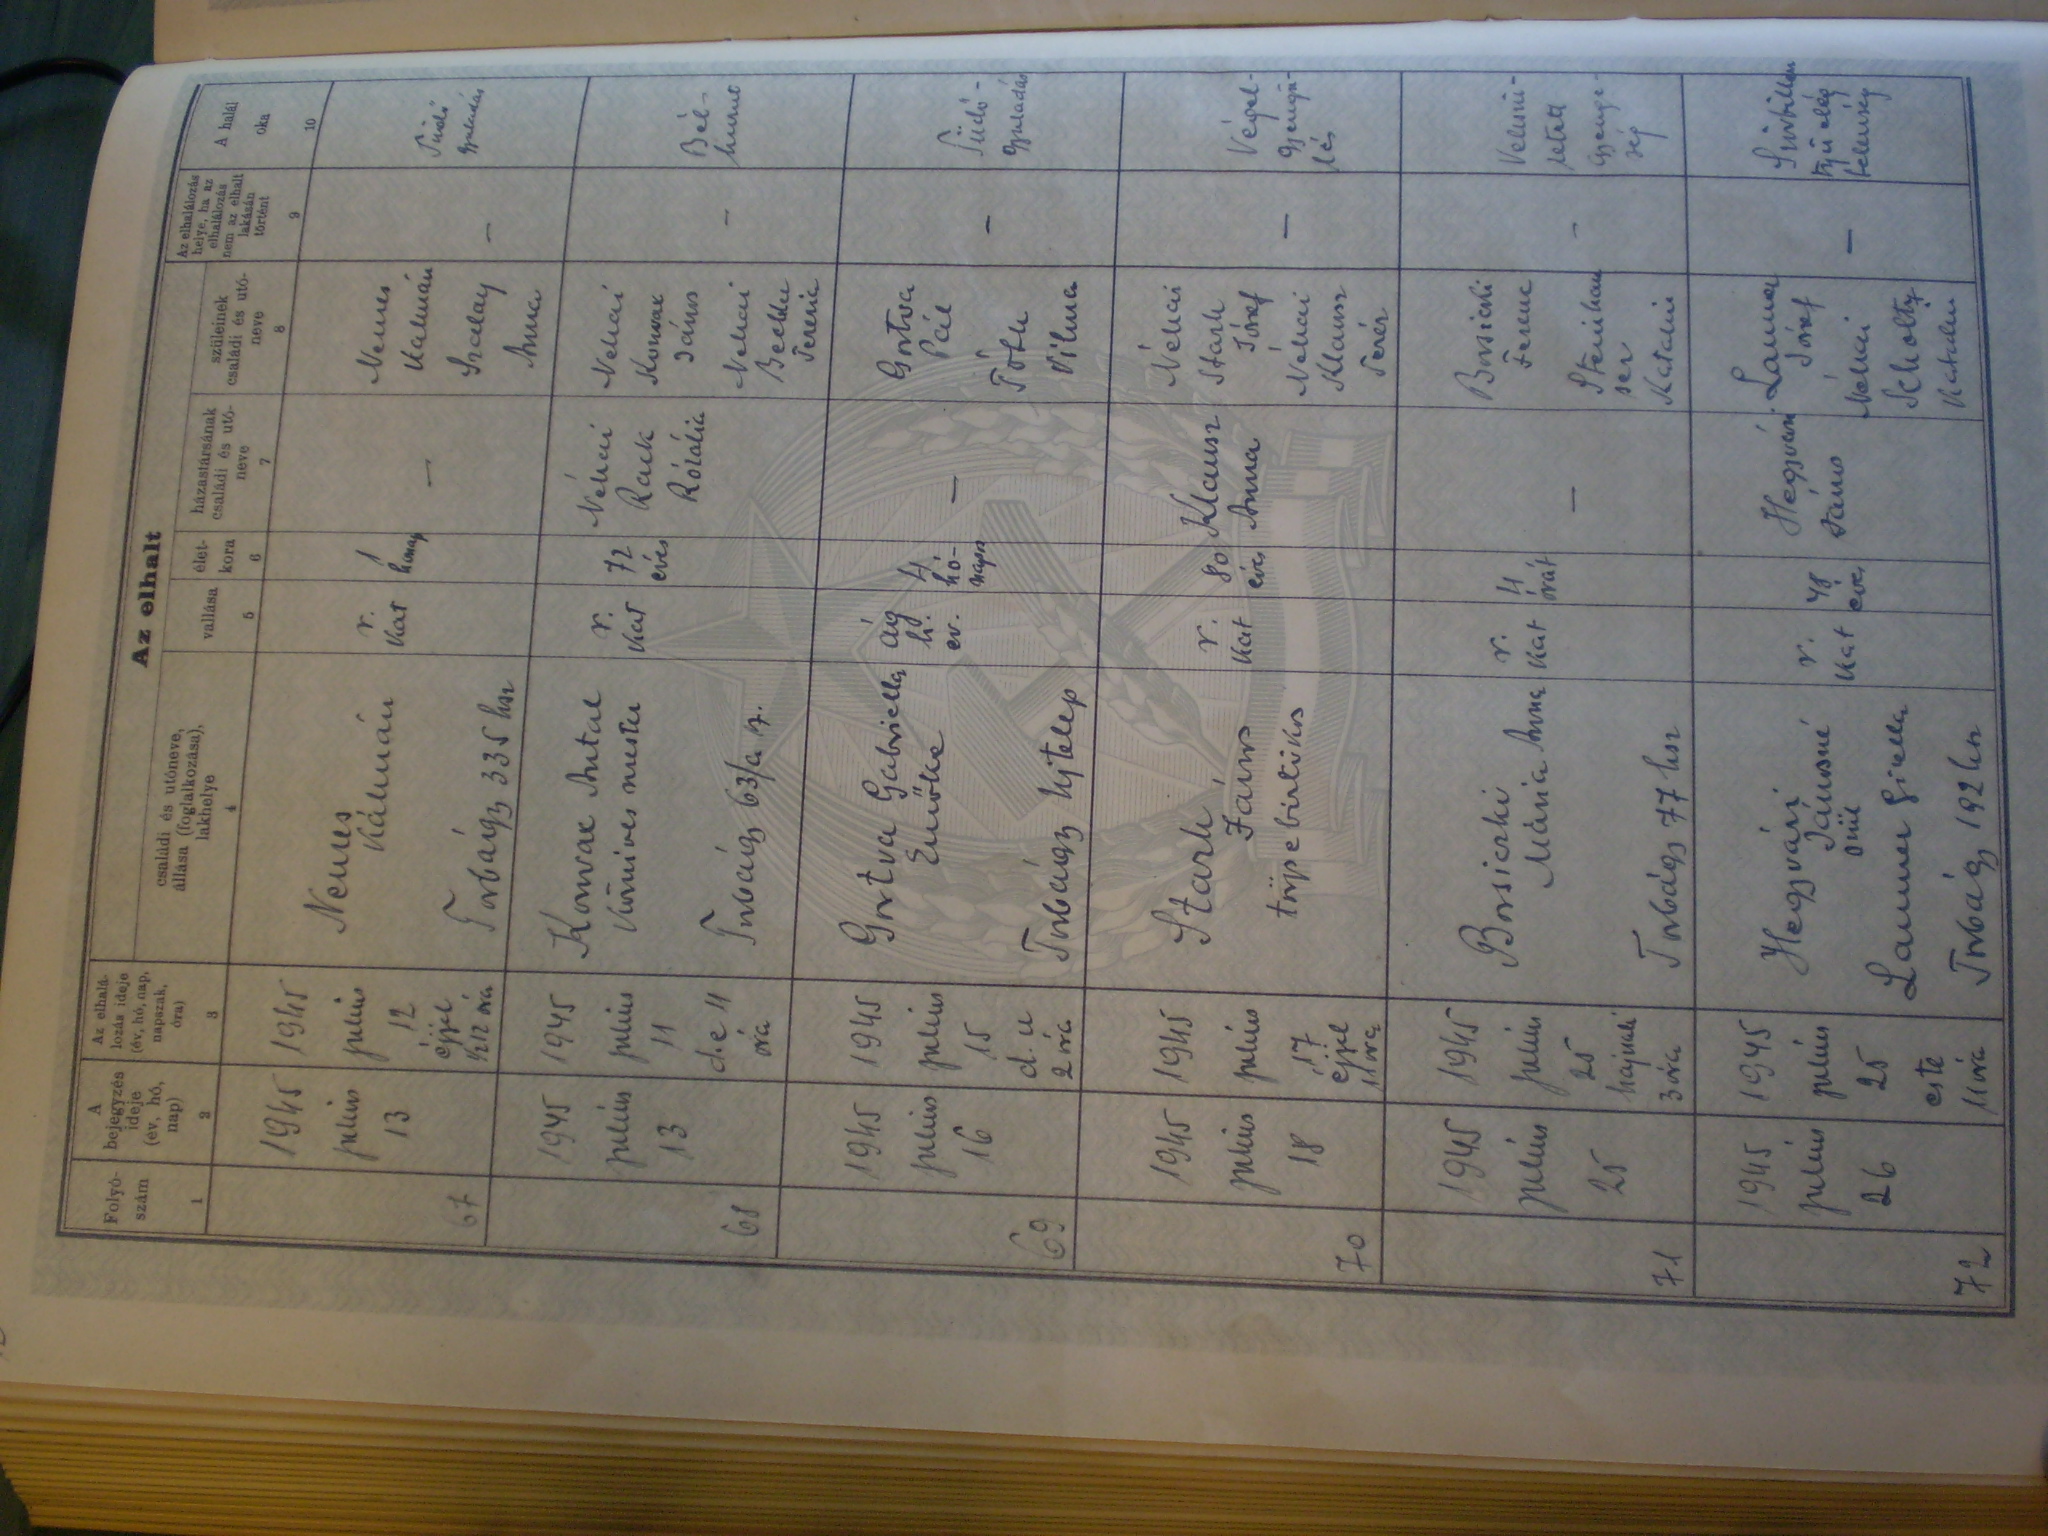 Az elhalt
Folyó-
szám
A
bejegyzés
ideje
(év, hó,
nap)
Az elhalá-
lozás ideje
(év, hó, nap,
napszak,
óra)
családi és utóneve,
állása (foglalkozása),
lakhelye
vallása
élet-
kora
házastársának
családi és utó-
neve
szüleinek
családi és utó-
neve
Az elhalálozás
helye, ha az
elhalálozás
nem az elhalt
lakásán
történt
A halál
oka
1
2
3
4
5
6
7
8
9
10
67
1945
julius
13
1945
julius
12
éjjel
1/2 12 óra
Nemes
Kálmán
Torbágy 335 hsz
r.
kat
1
hónap
—
Nemes
Kálmán
Szalay
Anna
—
Tüdő
gyuladás
68
1945
julius
13
1945
julius
11
d.e 11
óra
Antal
Kőmives mester
Torbágy 63/a
r.
kat
72
éves
Néhai
Rack
Rózália
Néhai
János
Néhai
Terézia
—
Bél-
hurut
69
1945
julius
16
1945
julius
15
d. u
2 óra
Gortva Gabriella
Emőke
Torbágy Ujtelep
ág
h.
ev.
4
hó-
napos
—
Gortva
Pál
Tóth
Vilma
—
Tüdő-
gyuladás
70
1945
julius
18
1945
julius
17
éjjel
11 óra
Stark
János
törpebirtokos
r.
kat
80
éves
Klausz
Anna
Néhai
Stark
József
Néhai
Klausz
Teréz
—
Végel-
gyengü-
lés
71
1945
julius
25
1945
julius
25
hajnali
3 óra
Borsiczki
Mária Anna
Torbágy 77 hsz
r.
kat
4
órát
—
Borsiczki
Ferenc
Steinhau
ser
Katalin
—
Veleszü-
letett
gyenge-
ség
72
1945
julius
26
1945
julius
25
este
11 óra
Hegyvári
Jánosné
szül
Lammer Gizella
Torbágy 192 hsz
r.
kat
48
éves
Hegyvári
János
Lammer
József
Néhai
Scholtz
Katalin
—